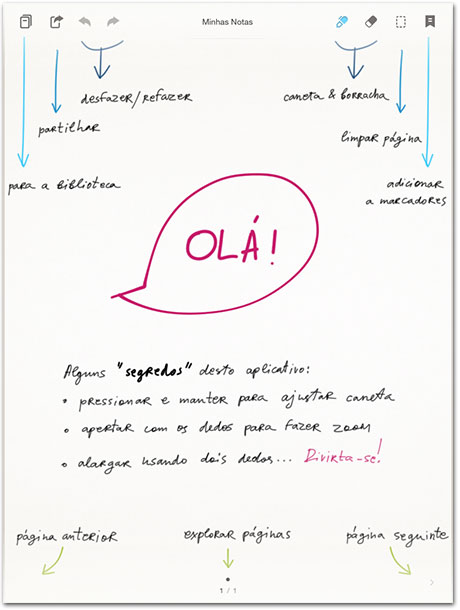 Minhas Notas
desfazer/refazer
caneta & borracha
partilhar
limpar página
para a biblioteca
adicionar
a marcadores
OLÁ!
Alguns "segredos" desto aplicativo:
• pressionar e manter para ajustar caneta
• apertar com os dedos para fazer zoom
• alargar usando dois dedos... Divirta-se!
página anterior
explorar páginas
página seguinte
1 / 1